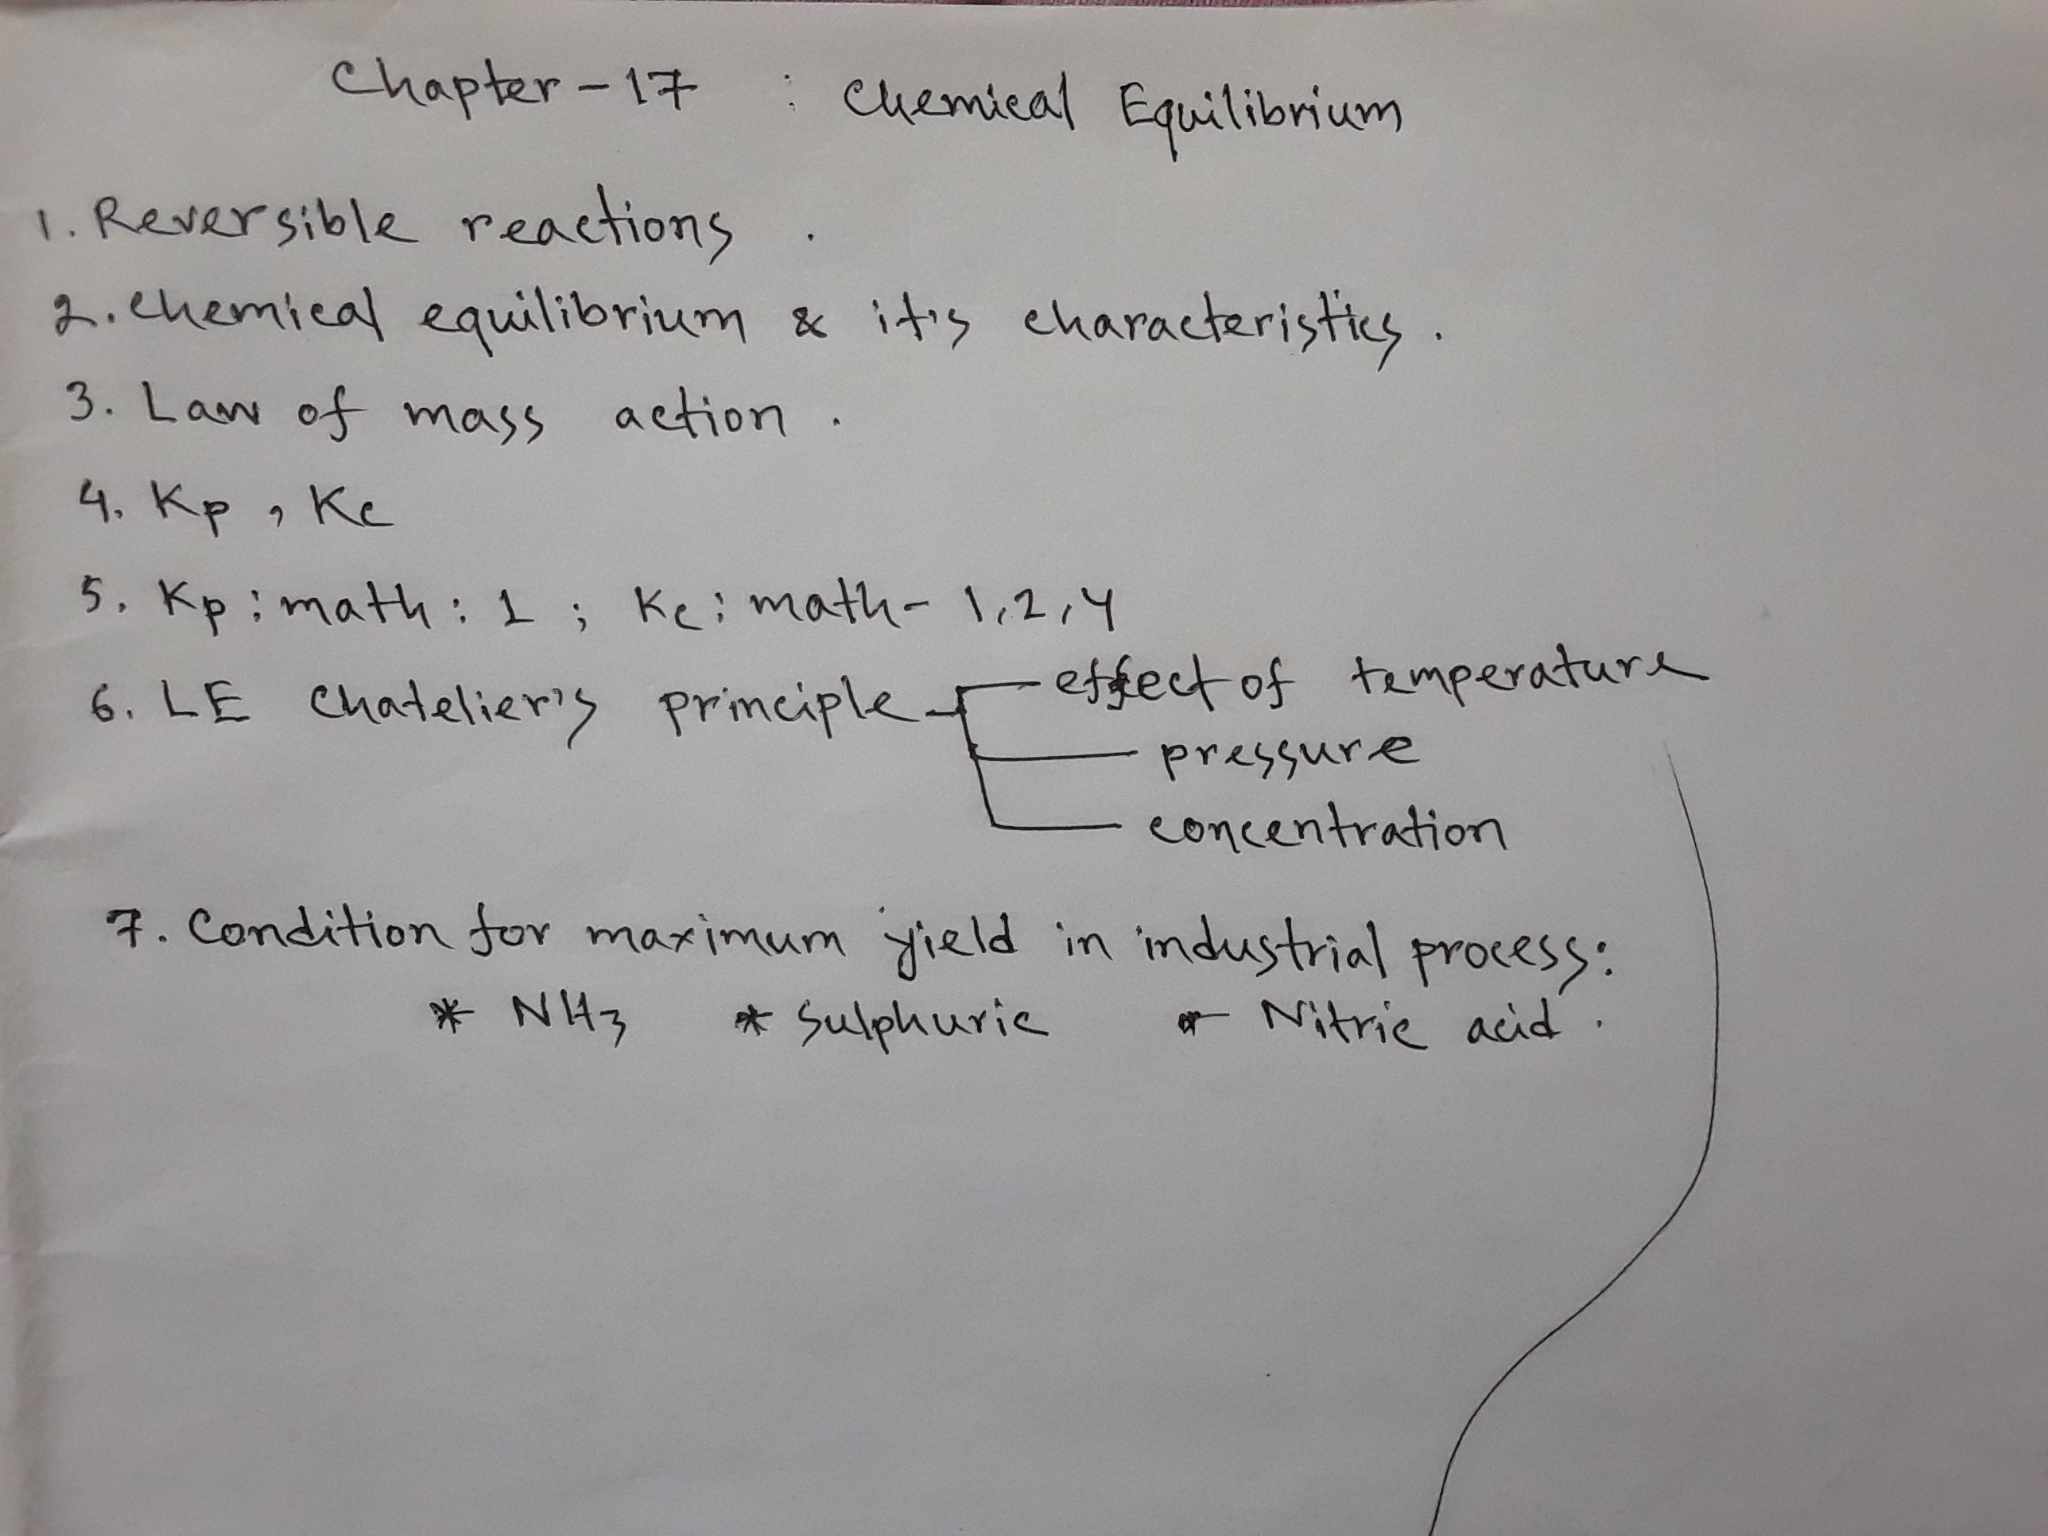 Chapter - 17 : Chemical Equilibrium
1. Reversible reactions .
2. Chemical equilibrium & it's characteristics .
3. Law of mass action .
4. Kp , Kc
5. Kp : math : 1 ; Kc : math - 1, 2, 4
6. LE Chatelier's principle effect of temperature
pressure
concentration
7. Condition for maximum yield in industrial process :
* NH3 * Sulphuric * Nitric acid .